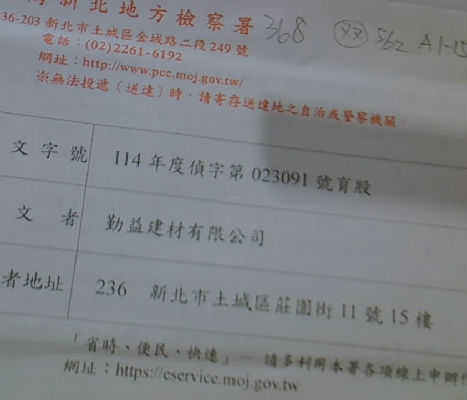 新北地方檢察署 368 582 A1-15
36-203 新北市土城區金城路二段249號
電話：(02)2261-6192
網址：http://www.pcc.moj.gov.tw/
※無法投遞（送達）時，請寄存送達地之自治或警察機關
文字號 114年度偵字第023091號育股
文者 勤益建材有限公司
者地址 236 新北市土城區莊園街11號15樓
「省時、便民、快速」— 請多利用本署各項線上申辦
網址：https://eservice.moj.gov.tw